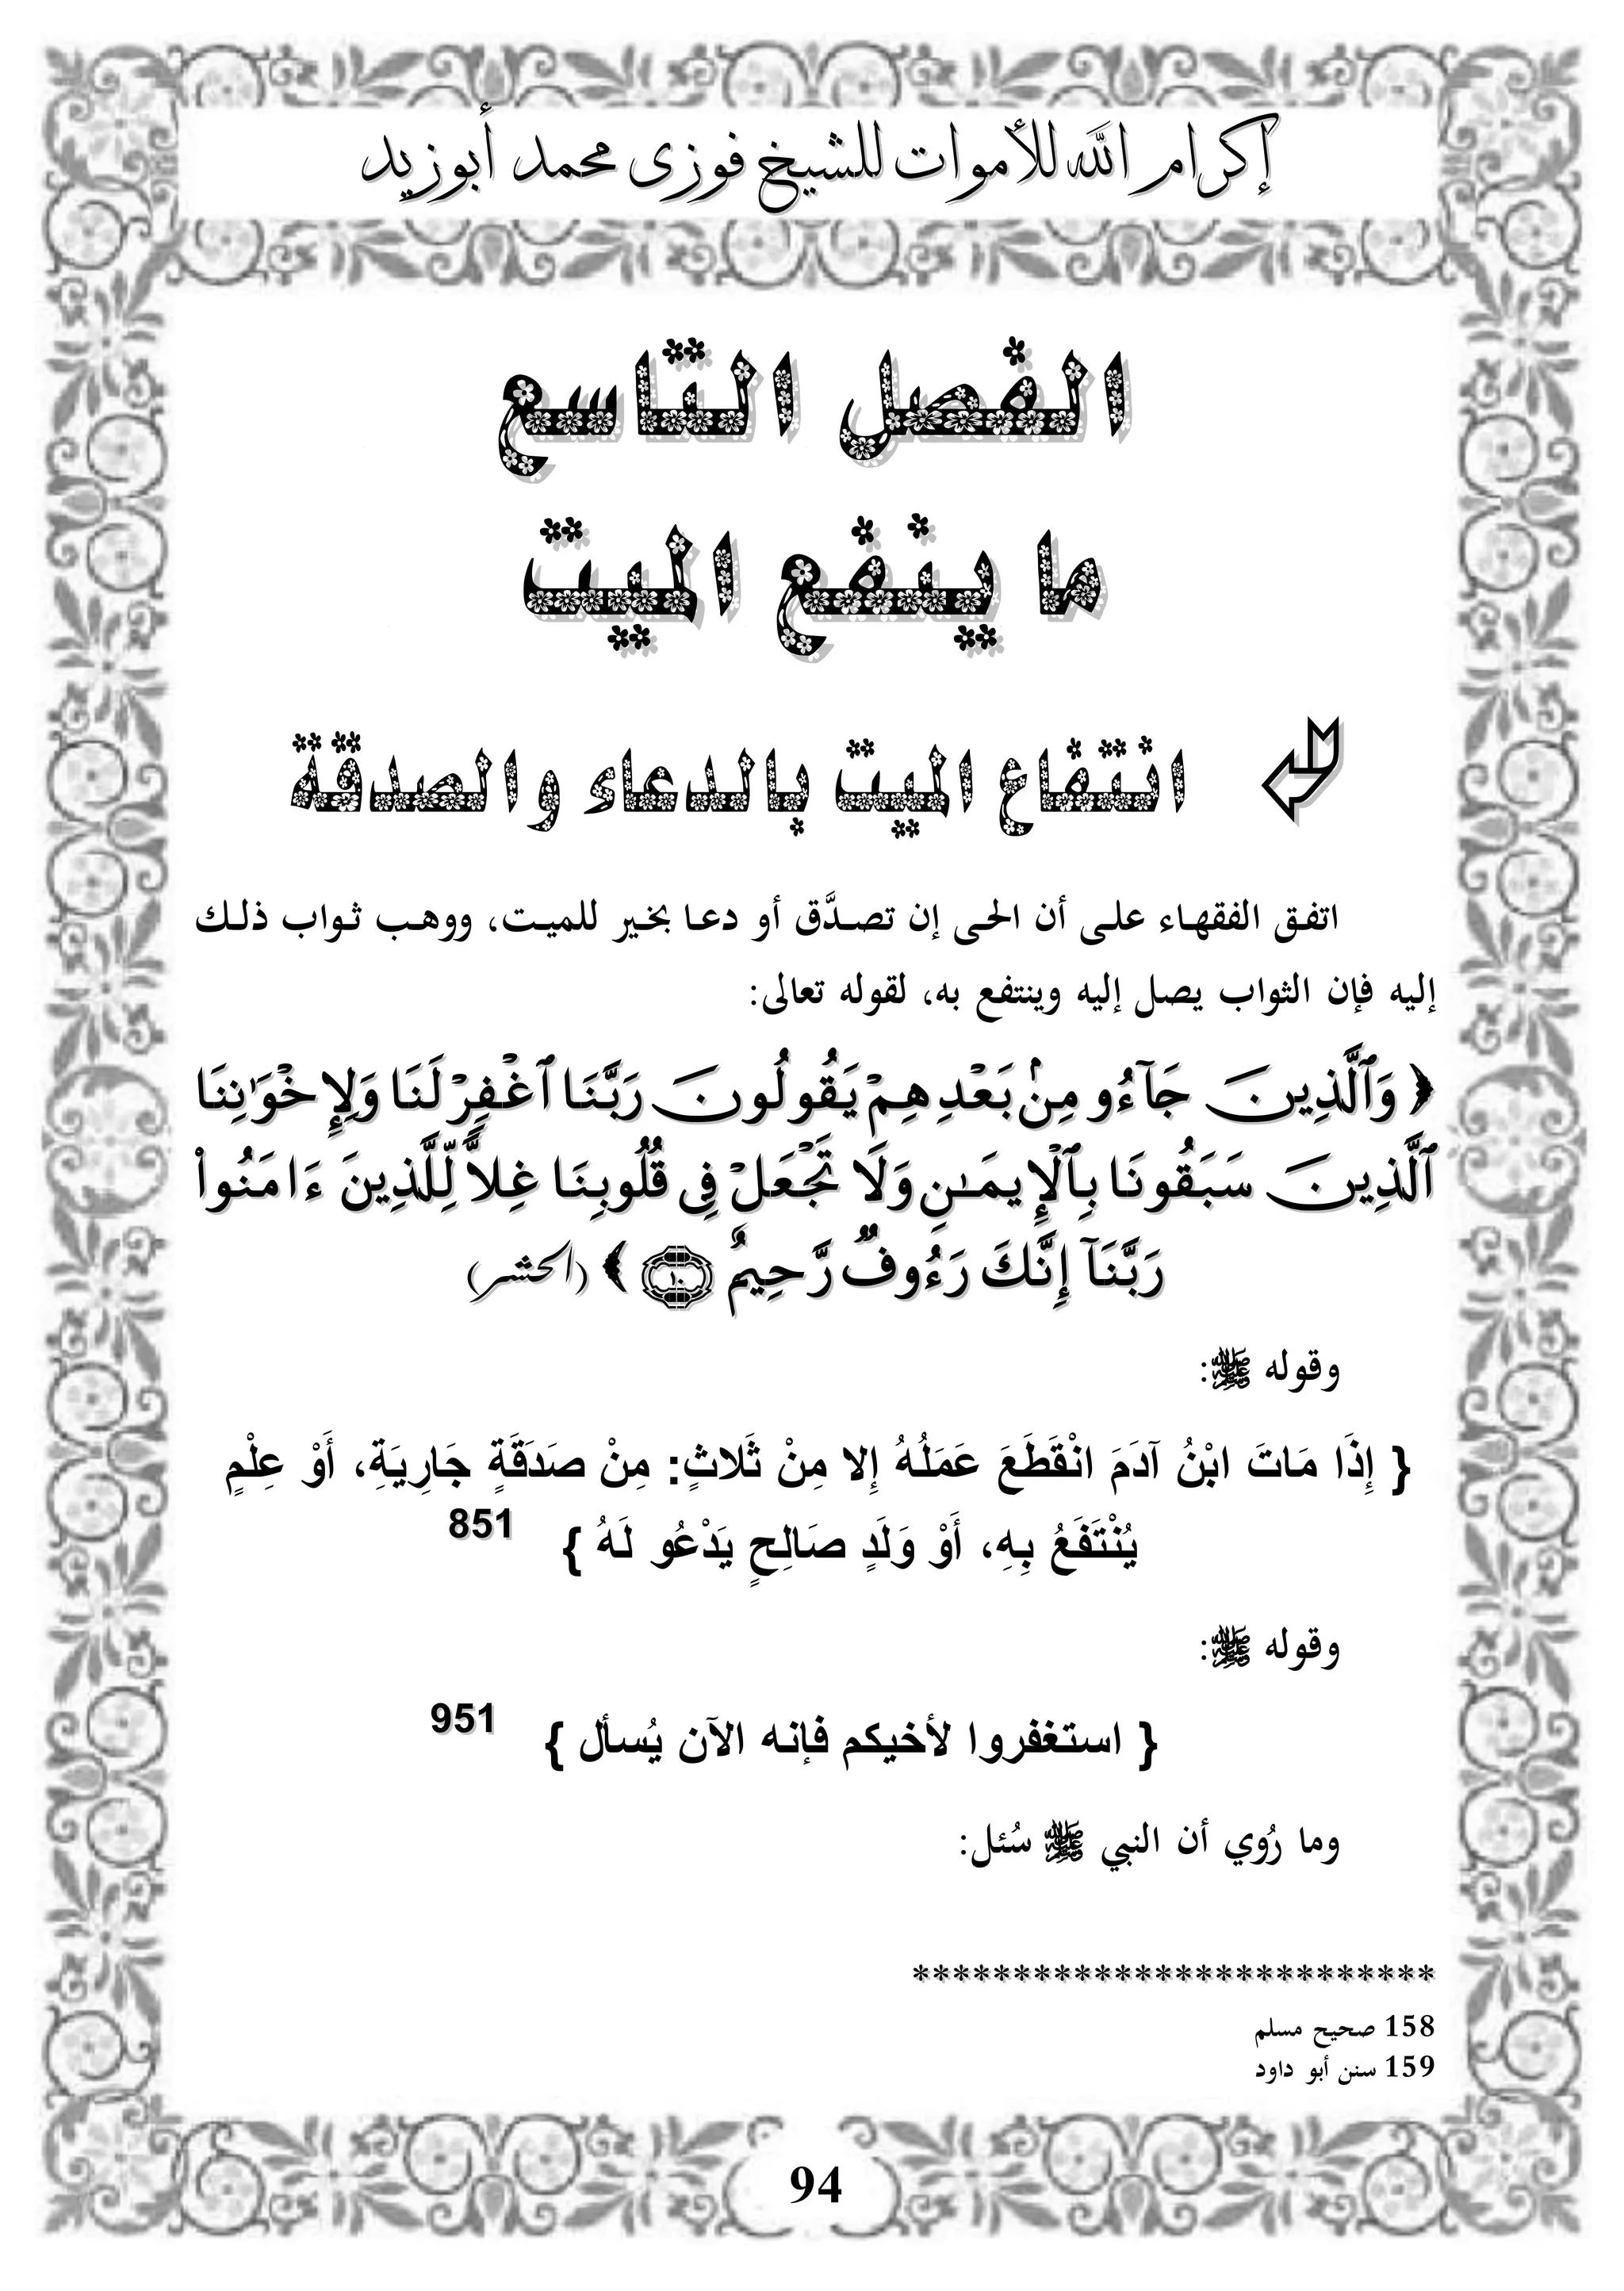 إكرام الله للأموات للشيخ فوزى محمد أبوزيد
الفصل التاسع
ما ينفع الميت
انتفاع الميت بالدعاء والصدقة
اتفق الفقهاء على أن الحى إن تصدَّق أو دعا بخير للميت، ووهب ثواب ذلك
إليه فإن الثواب يصل إليه وينتفع به، لقوله تعالى:
﴿ وَٱلَّذِينَ جَآءُو مِنۢ بَعْدِهِمْ يَقُولُونَ رَبَّنَا ٱغْفِرْ لَنَا وَلِإِخْوَٰنِنَا
ٱلَّذِينَ سَبَقُونَا بِٱلْإِيمَـٰنِ وَلَا تَجْعَلْ فِى قُلُوبِنَا غِلًّا لِّلَّذِينَ ءَامَنُوا۟
رَبَّنَآ إِنَّكَ رَءُوفٌ رَّحِيمٌ ۝١٠ ﴾ (الحشر)
وقوله ﷺ:
{ إِذَا مَاتَ ابْنُ آدَمَ انْقَطَعَ عَمَلُهُ إِلا مِنْ ثَلاثٍ: مِنْ صَدَقَةٍ جَارِيَةٍ، أَوْ عِلْمٍ
يُنْتَفَعُ بِهِ، أَوْ وَلَدٍ صَالِحٍ يَدْعُو لَهُ } 851
وقوله ﷺ:
{ استغفروا لأخيكم فإنه الآن يُسأل } 951
وما رُوي أن النبي ﷺ سُئل:
**************************
158 صحيح مسلم
159 سنن أبو داود
94